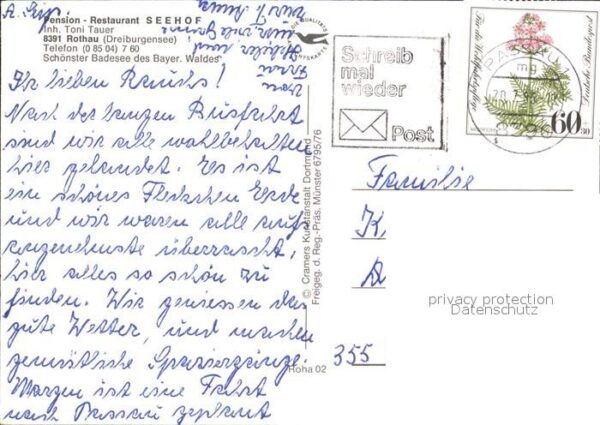 Pension - Restaurant SEEHOF
Inh. Toni Tauer
8391 Rothau (Dreiburgensee)
Telefon (0 85 04) 7 60
Schönster Badesee des Bayer. Waldes
Ihr lieben Rauchs!
Nach der langen Busfahrt
sind wir alle wohlbehalten
hier gelandet. Es ist
ein schönes Fleckchen Erde
und wir waren alle aufs
angenehmste überrascht,
hier alles so schön zu
finden. Wir geniessen das
gute Wetter, und machen
gemütliche Spaziergänge.
Morgen ist eine Fahrt
nach Passau geplant
© Cramers Kunstanstalt Dortmund
Freigeg. d. Reg.-Präs. Münster 6795/76
Roha 02
Schreib
mal
wieder
Post
Deutsche Bundespost
60
Familie
K.
A
355
privacy protection
Datenschutz